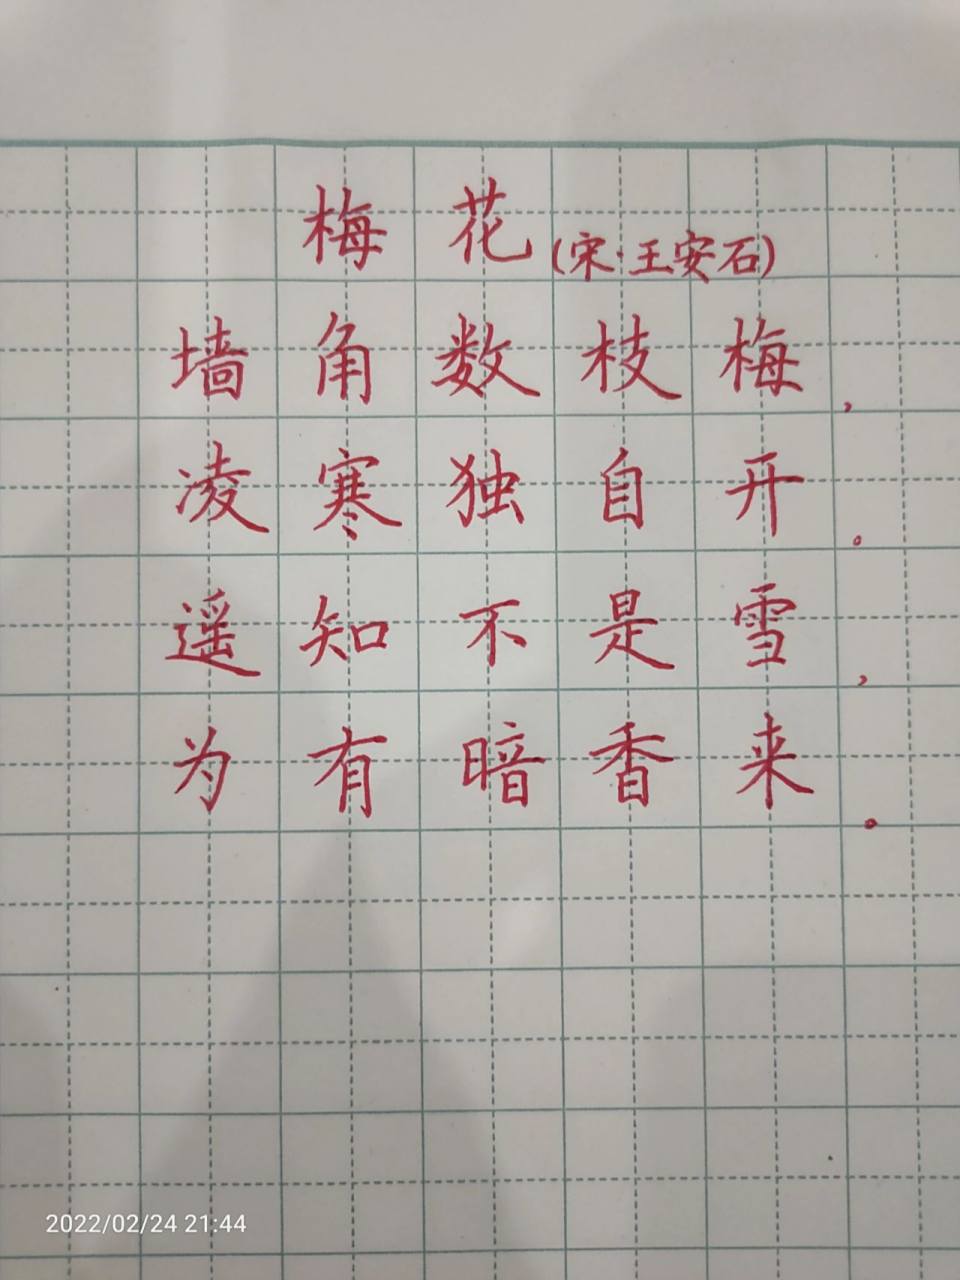 梅花(宋·王安石)
墙角数枝梅,
凌寒独自开。
遥知不是雪,
为有暗香来。
2022/02/24 21:44